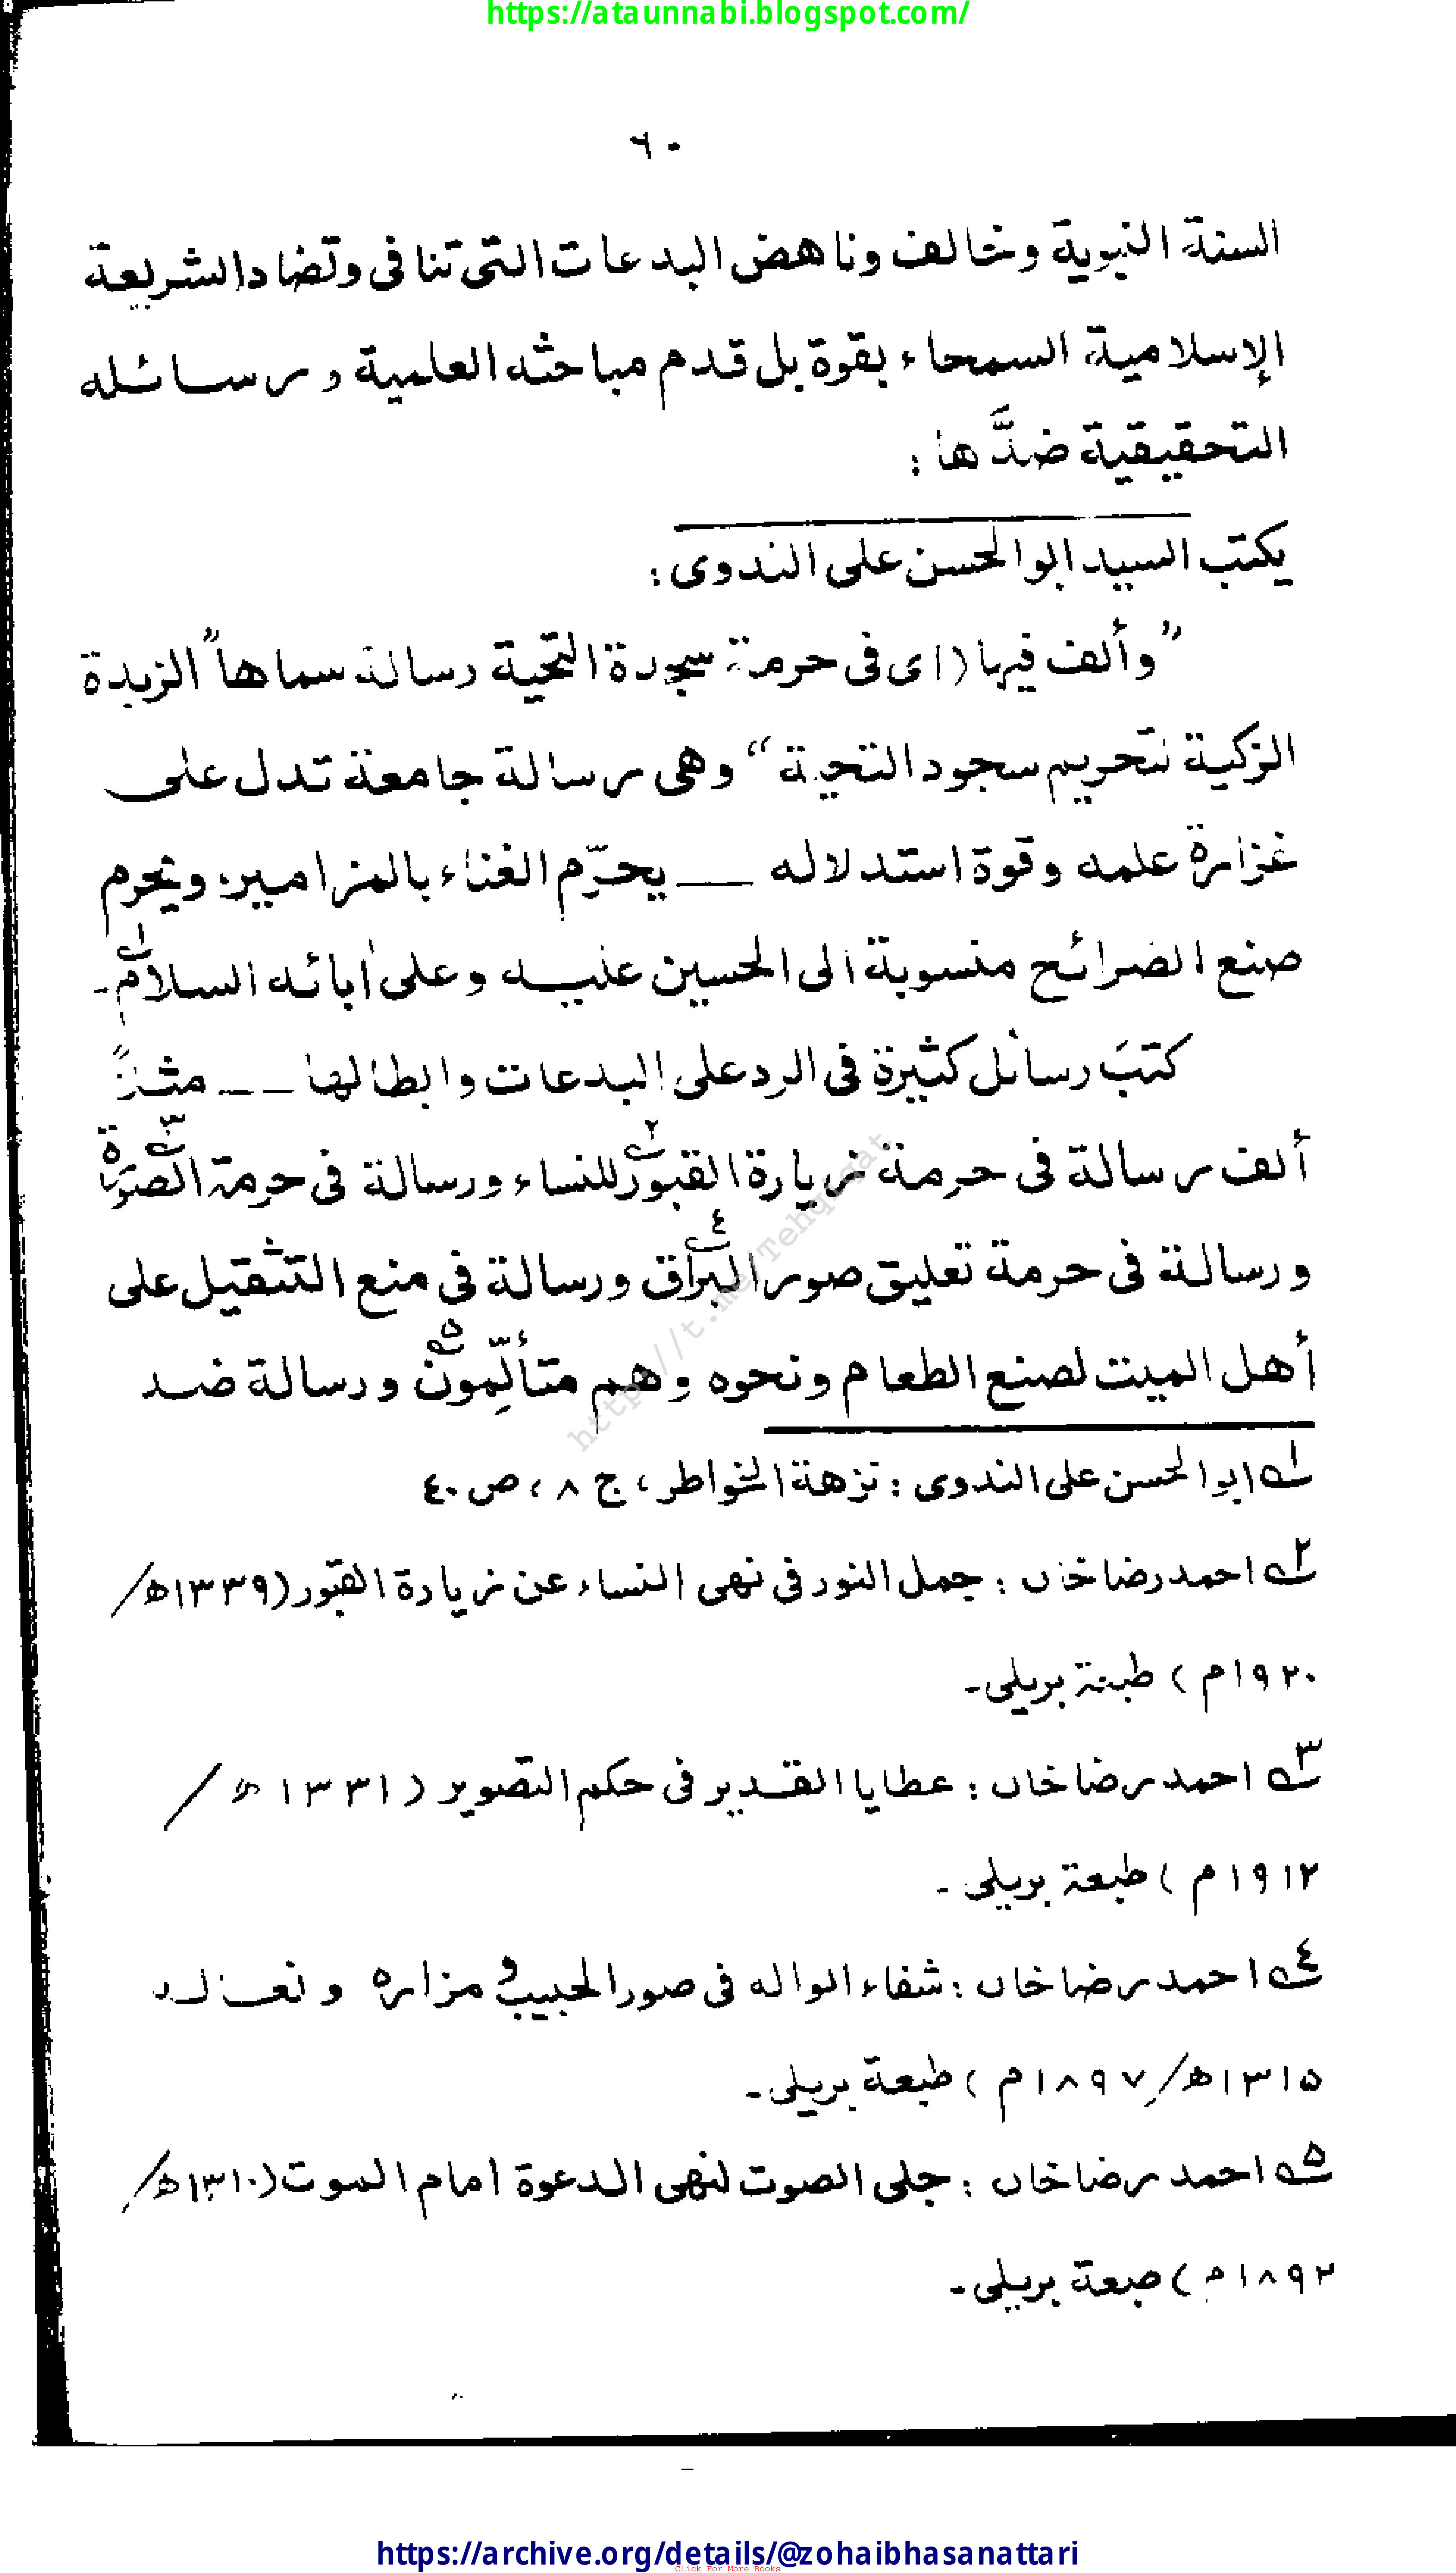 https://ataunnabi.blogspot.com/
٦٠
السنة النبوية وخالف وناهض البدعات التى تنافى وتضاد الشريعة
الإسلامية السمحاء بقوة بل قدم مباحثه العلمية ورسائله
التحقيقية ضدَّها :
يكتب السيد ابو الحسن على الندوى :
”وألف فيها (اى فى حرمة سجدة التحية رسالة سماها ”الزبدة
الزكية لتحريم سجود التحية“ وهى رسالة جامعة تدل على
غزارة علمه وقوة استدلاله ــــ يحرّم الغناء بالمزامير، ويحرم
صنع الضرائح منسوبة الى الحسين عليه وعلى اٰبائه السلام١۔
كتبَ رسائل كثيرة فى الرد على البدعات وابطالها ــ ــ مثلاً
ألف رسالة فى حرمة زيارة القبور٢ للنساء ورسالة فى حرمة الصورة٣
ورسالة فى حرمة تعليق صور البراق٤ ورسالة فى منع التثقيل على
أهل الميت لصنع الطعام ونحوه وهم متألِّمون٥ ورسالة ضد
١ ابو الحسن على الندوى : نزهة الخواطر، ج ٨، ص ٤٠
٢ احمد رضا خاں : جمل النور فى نهى النساء عن زيارة القبور (١٣٣٩ھ/
١٩٢٠م) طبعة بريلى۔
٣ احمد رضا خاں : عطايا القدير فى حكم التصوير (١٣٣١ھ/
١٩١٢م) طبعة بريلى۔
٤ احمد رضا خاں : شفاء الواله فى صور الحبيب و مزاره ونعاله
١٣١٥ھ/١٨٩٧م) طبعة بريلى۔
٥ احمد رضا خاں : جلى الصوت لنهى الدعوة امام الموت (١٣١٠ھ/
١٨٩٢م) طبعة بريلى۔
http://t.me/Tehqiqat
https://archive.org/details/@zohaibhasanattari
Click For More Books